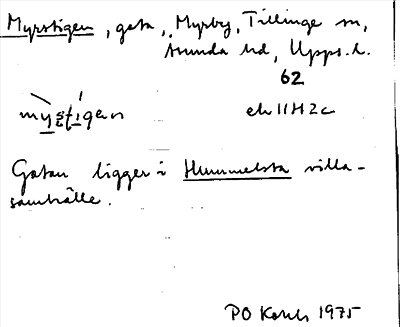 Myrstigen, gata, Myrby, Tillinge sn,
Åsunda hd, Upps. l.
62
mystigen
ek 11H2c
Gatan ligger i Hummelsta villa-
samhälle.
PO 1975